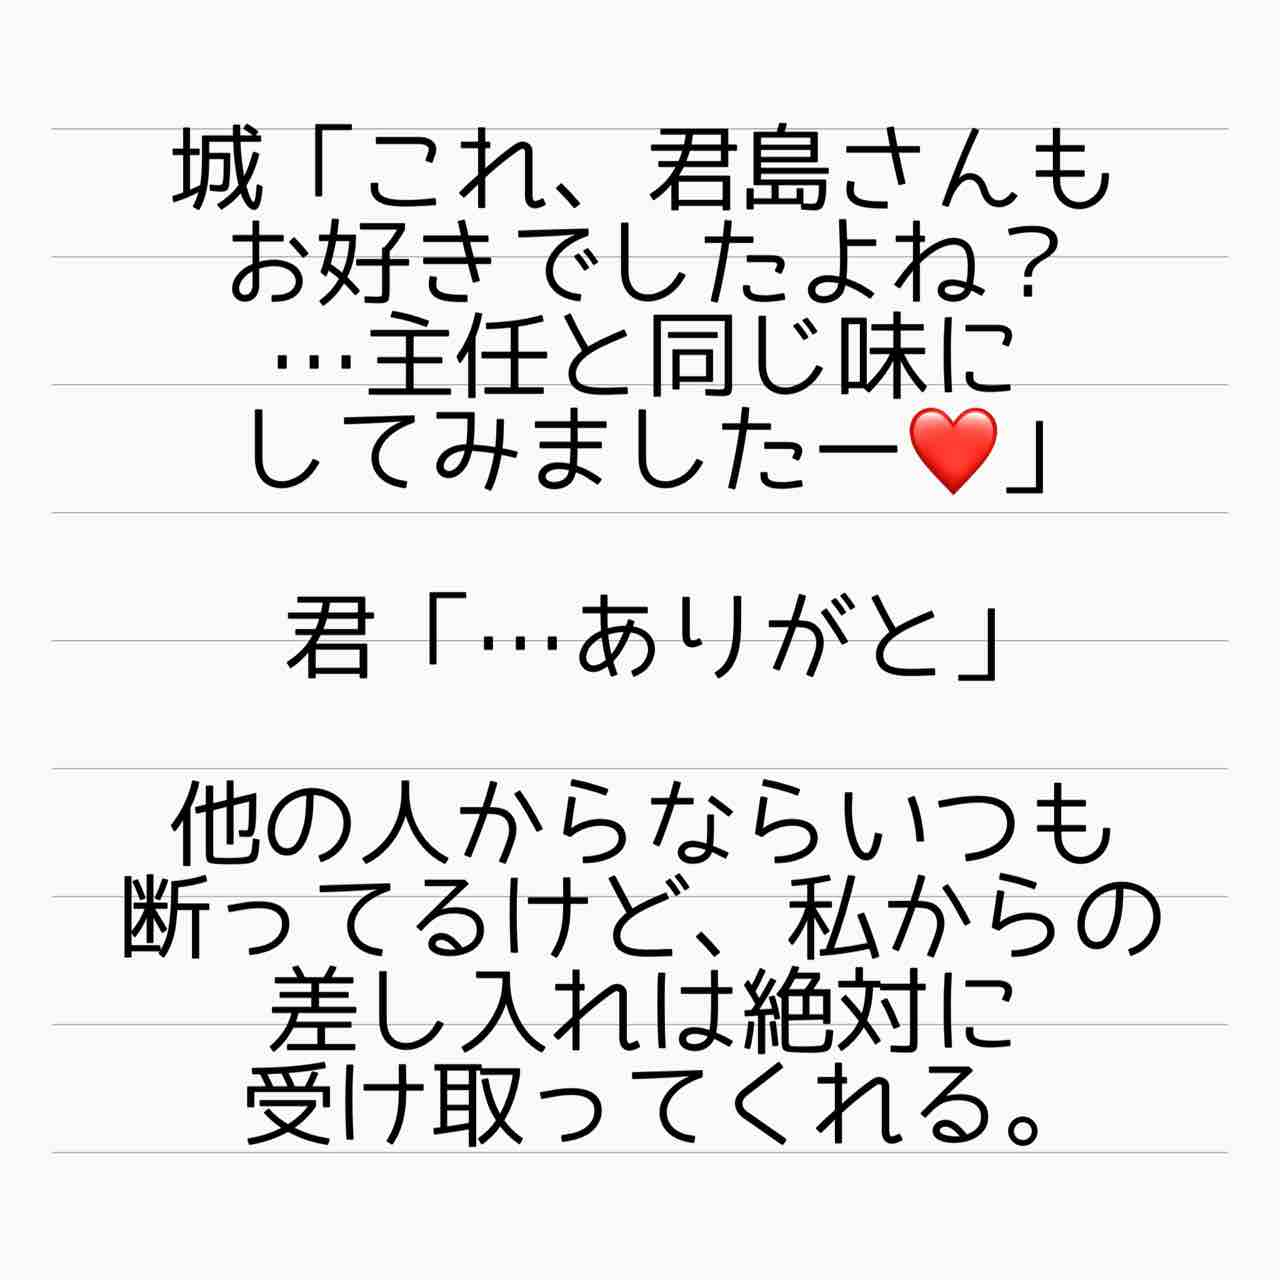 城「これ、君島さんも
お好きでしたよね？
…主任と同じ味に
してみましたー❤️」
君「…ありがと」
他の人からならいつも
断ってるけど、私からの
差し入れは絶対に
受け取ってくれる。